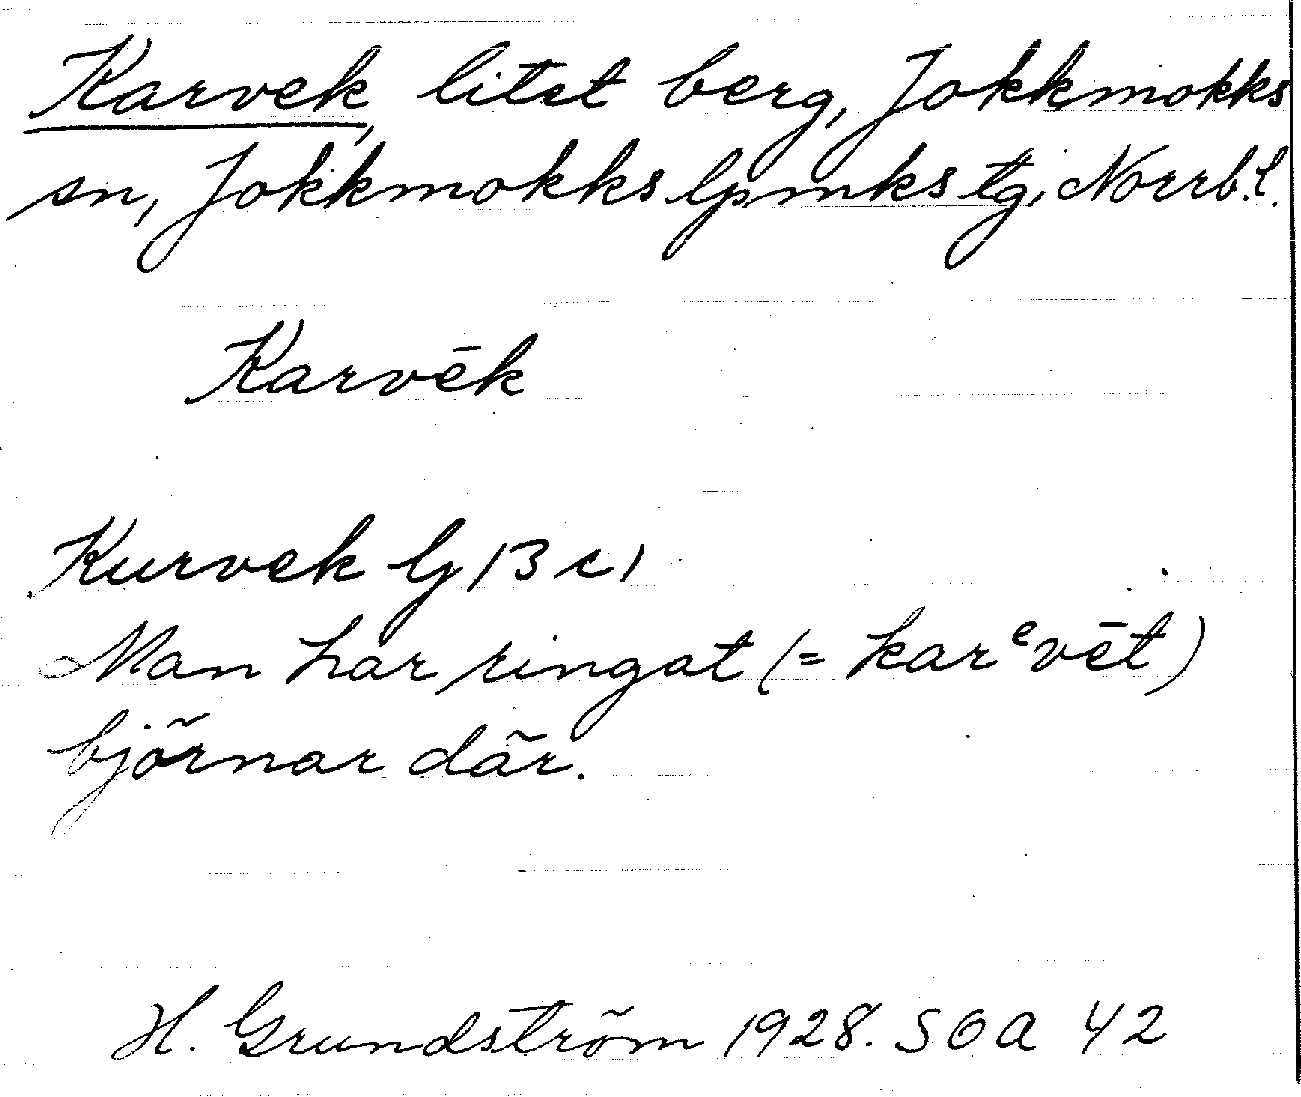 Karvek, litet berg, Jokkmokks
sn, Jokkmokks lpmks tg, Norrb. l.
Karvēk
Kurvek Gj 13 c 1
Man har ringat (= karᵉvēt)
björnar där.
H. Grundström 1928. SOA 42